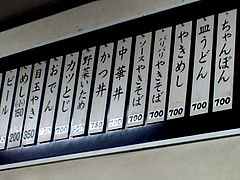 ちゃんぽん 700
皿うどん 700
やきめし 700
パリパリやきそば 700
ソースやきそば 700
中華丼 700
かつ丼
野菜いため
カツとじ
おでん
目玉やき 350
めし(小)150
ビール